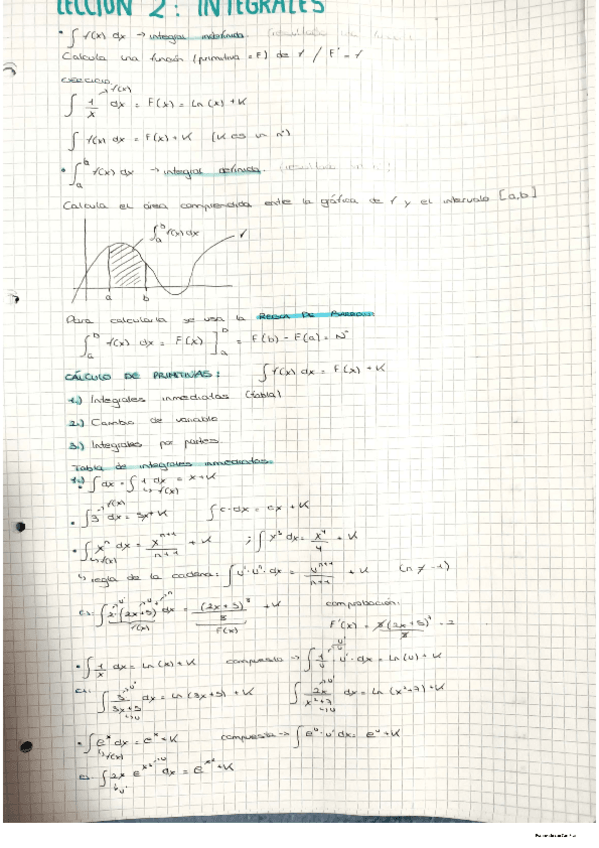 LECCIÓN 2: INTEGRALES
• ∫ f(x) dx → integral indefinida
Calcula una función (primitiva = F) de f / F' = f
EJERCICIO
∫ 1/x dx = F(x) = Ln(x) + K
→ f(x)
∫ f(x) dx = F(x) + K (K es un nº)
• ∫ₐᵇ f(x) dx → integral definida.
Calcula el área comprendida entre la gráfica de f y el intervalo [a,b]
∫ₐᵇ f(x) dx
f
a b
Para calcularla se usa la REGLA DE BARROW:
∫ₐᵇ f(x) dx = F(x) ]ₐᵇ = F(b) - F(a) = Nº
CÁLCULO DE PRIMITIVAS: ∫ f(x) dx = F(x) + K
1.) Integrales inmediatas (tabla)
2.) Cambio de variable
3.) Integrales por partes
Tabla de integrales inmediatas.
1.) • ∫ dx = ∫ 1 dx = x + K
↳ f(x)
• ∫ 3 dx = 3x + K ∫ c·dx = cx + K
→ f(x)
• ∫ xⁿ dx = xⁿ⁺¹/n+1 + K ; ∫ x³ dx = x⁴/4 + K
↳ f(x)
↳ regla de la cadena: ∫ u'·uⁿ·dx = uⁿ⁺¹/n+1 + K (n ≠ -1)
comprobación:
• ∫ 1/x dx = Ln(x) + K compuesta → ∫ 1/u · u' · dx = Ln(u) + K
ej. ∫ 3/3x+5 dx = Ln(3x+5) + K ∫ 2x/x²+7 dx = Ln(x²+7) + K
• ∫ eˣ dx = eˣ + K compuesta → ∫ eᵘ · u' dx = eᵘ + K
↳ f(x)